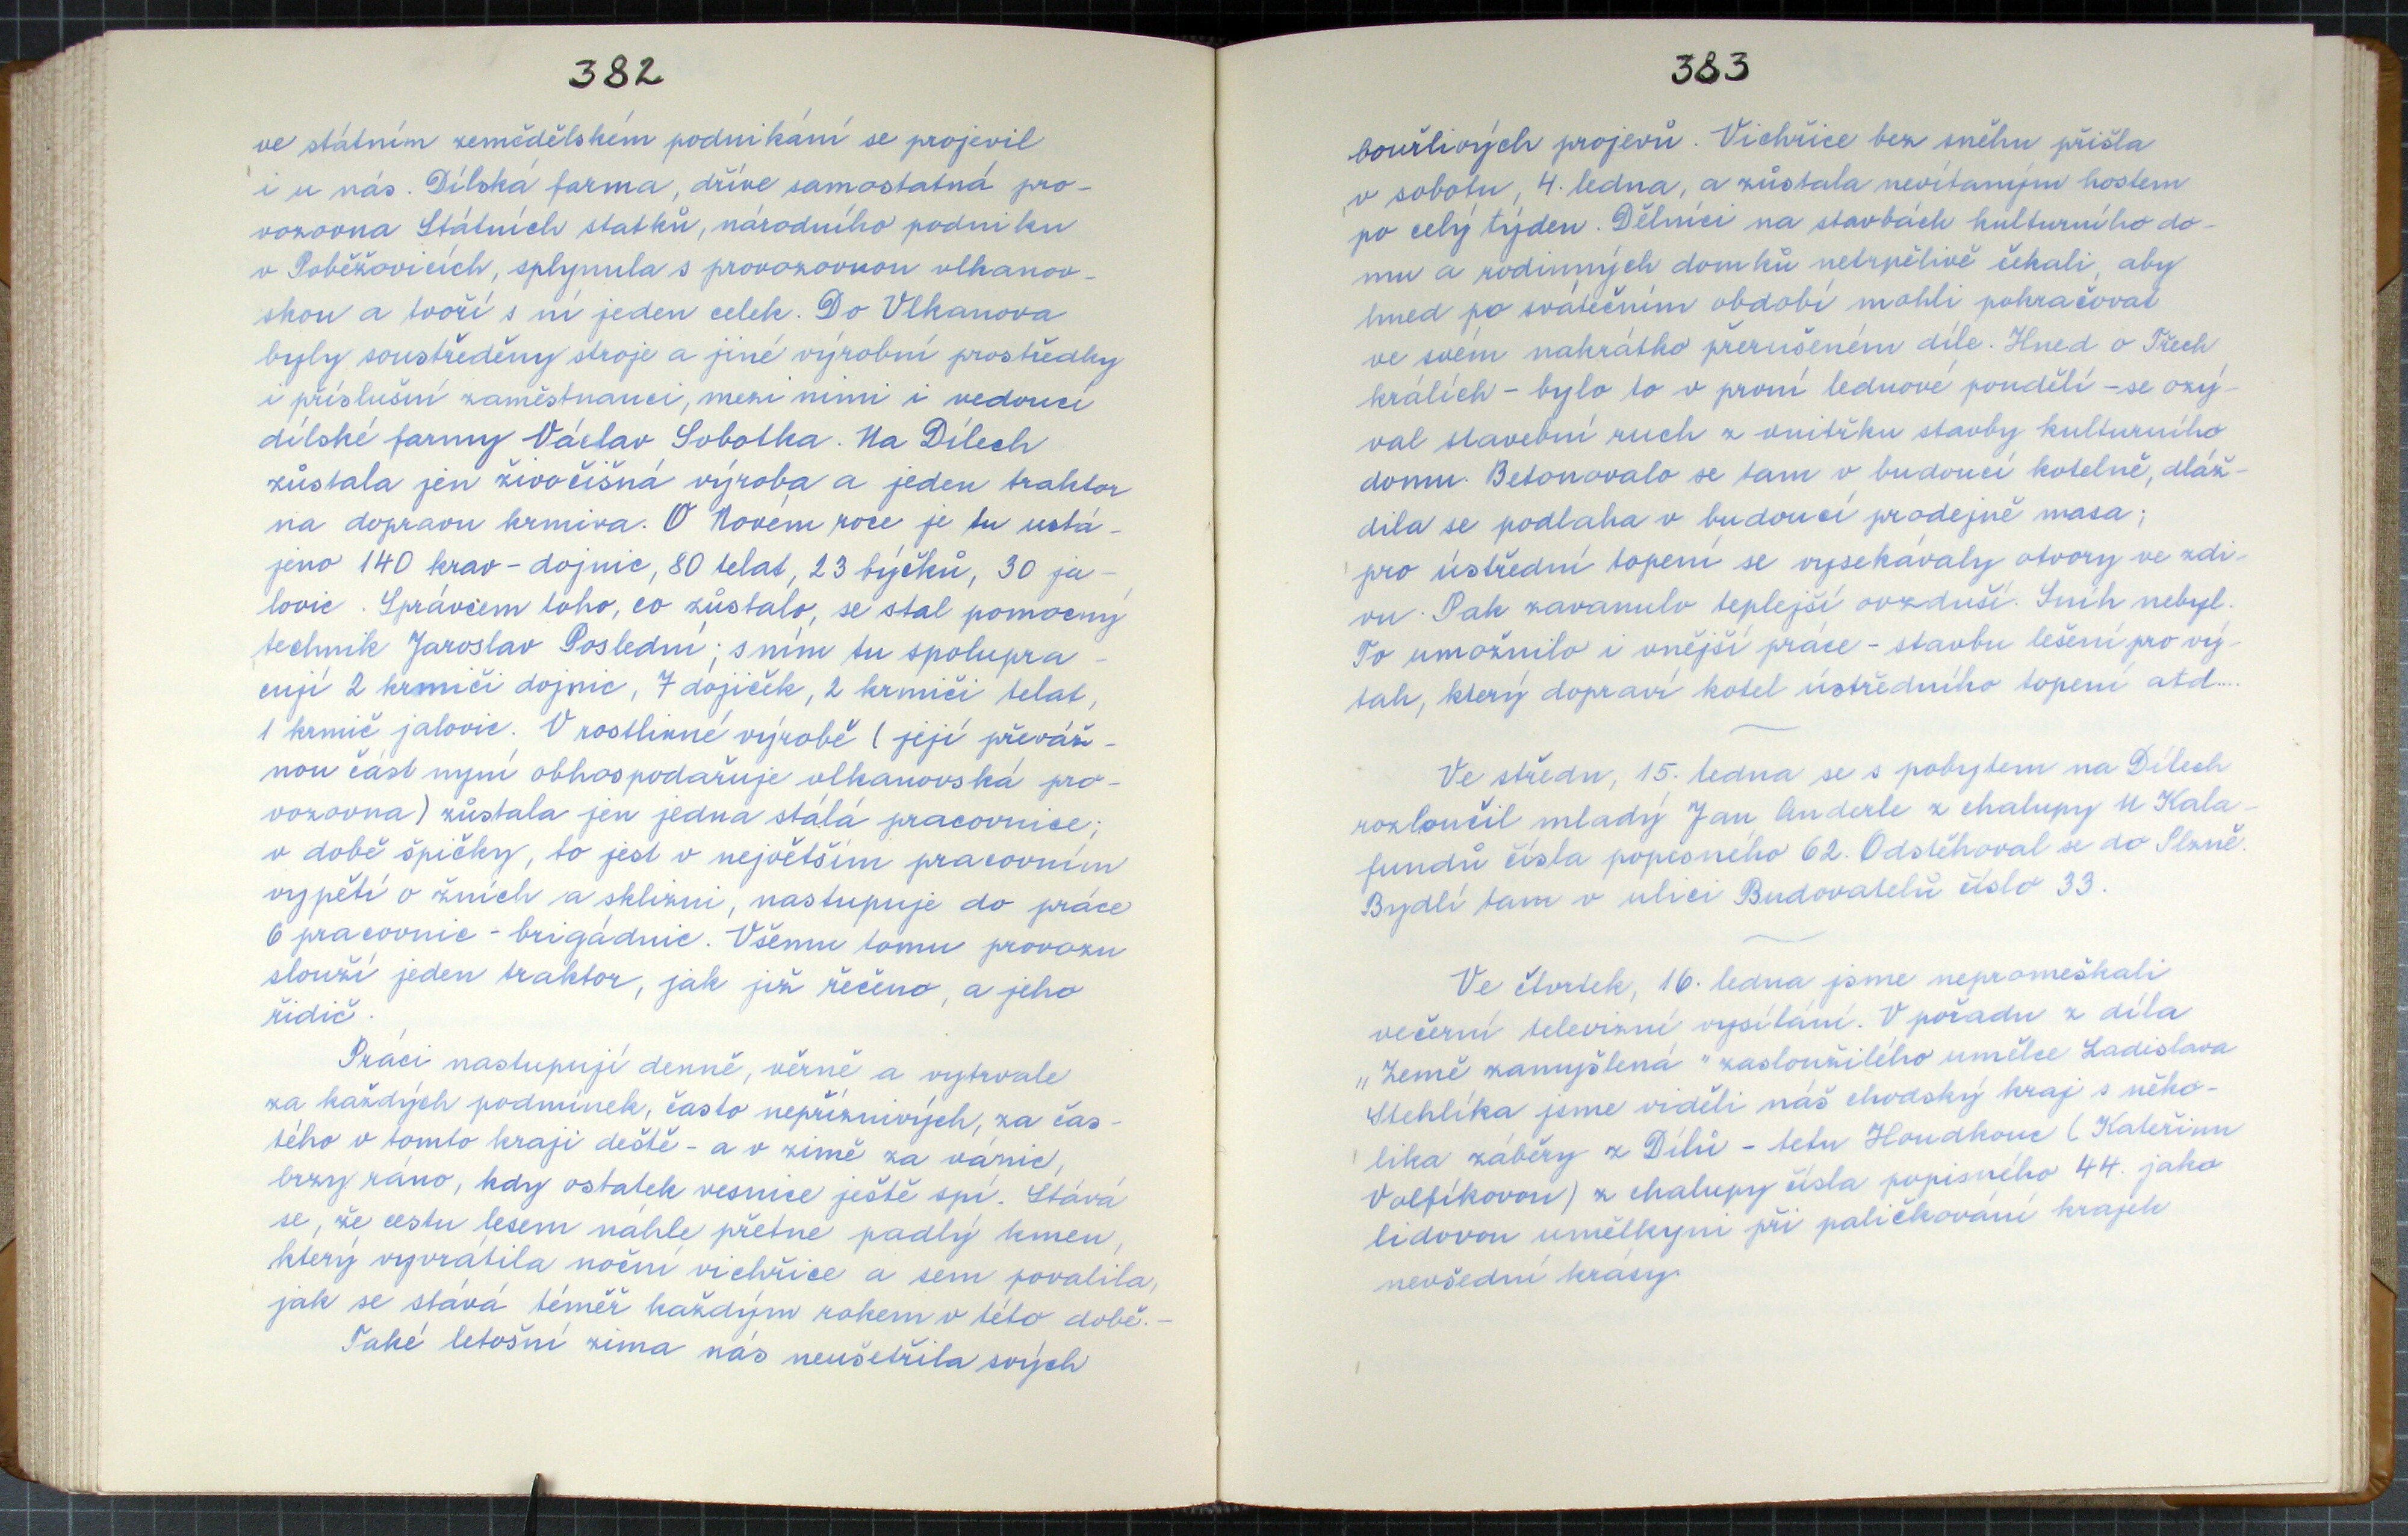 382
ve státním zemědělském podnikání se projevil
i u nás. Dílská farma, dříve samostatná pro-
vozovna Státních statků, národního podniku
v Poběžovicích, splynula s provozovnou vlkanov-
skou a tvoří s ní jeden celek. Do Vlkanova
byly soustředěny stroje a jiné výrobní prostředky
i příslušní zaměstnanci, mezi nimi i vedoucí
dílské farmy Václav Sobotka. Na Dílech
zůstala jen živočišná výroba a jeden traktor
na dopravu krmiva. O Novém roce je tu ustá-
jeno 140 krav - dojnic, 80 telat, 23 býčků, 30 ja-
lovic. Správcem toho, co zůstalo, se stal pomocný
technik Jaroslav Poslední; s ním tu spolupra-
cují 2 krmiči dojnic, 7 dojiček, 2 krmiči telat,
1 krmič jalovic. V rostlinné výrobě (její převáž-
nou část nyní obhospodařuje vlkanovská pro-
vozovna) zůstala jen jedna stálá pracovnice;
v době špičky, to jest v největším pracovním
vypětí o žních a sklizni, nastupuje do práce
6 pracovnic - brigádnic. Všemu tomu provozu
slouží jeden traktor, jak již řečeno, a jeho
řidič.
Práci nastupují denně, věrně a vytrvale
za každých podmínek, často nepříznivých, za čas-
tého v tomto kraji deště - a v zimě za vánic,
brzy ráno, kdy ostatek vesnice ještě spí. Stává
se, že cestu lesem náhle přetne padlý kmen,
který vyvrátila noční vichřice a sem povalila,
jak se stává téměř každým rokem v této době. -
Také letošní zima nás neušetřila svých
383
bouřlivých projevů. Vichřice bez sněhu přišla
v sobotu, 4. ledna, a zůstala nevítaným hostem
po celý týden. Dělníci na stavbách kulturního do-
mu a rodinných domků netrpělivě čekali, aby
hned po svátečním období mohli pokračovat
ve svém nakrátko přerušeném díle. Hned o Třech
králích - bylo to v první lednové pondělí - se ozý-
val stavební ruch z vnitřku stavby kulturního
domu. Betonovalo se tam v budoucí kotelně, dláž-
dila se podlaha v budoucí prodejně masa;
pro ústřední topení se vysekávaly otvory ve zdi-
vu. Pak zavanulo teplejší ovzduší. Sníh nebyl.
To umožnilo i vnější práce - stavbu lešení pro vý-
tah, který dopraví kotel ústředního topení atd....
Ve středu, 15. ledna se s pobytem na Dílech
rozloučil mladý Jan Anderle z chalupy U Kala-
fundů čísla popisného 62. Odstěhoval se do Plzně.
Bydlí tam v ulici Budovatelů číslo 33.
Ve čtvrtek, 16. ledna jsme nepromeškali
večerní televizní vysílání. V pořadu z díla
„Země zamyšlená" zasloužilého umělce Ladislava
Stehlíka jsme viděli náš chodský kraj s něko-
lika záběry z Dílů - tetu Houdkouc (Kateřinu
Volfíkovou) z chalupy čísla popisného 44. jako
lidovou umělkyni při paličkování krajek
nevšední krásy.